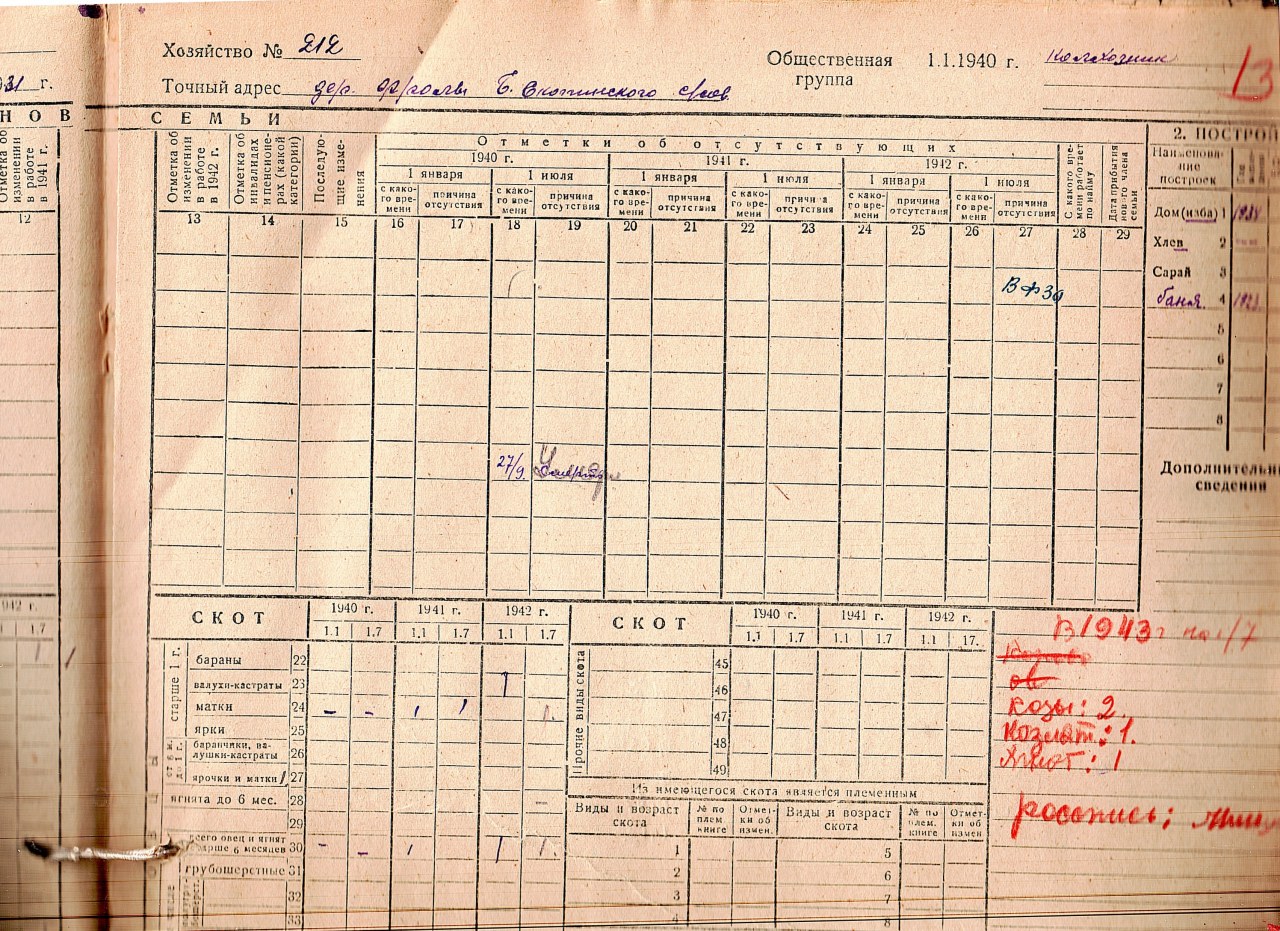 Хозяйство № 212
Точный адрес дер. Б. Скопинского
Общественная группа 1.1.1940 г. колхозник
13
31 г.
НОВ
СЕМЬИ
Отметка об изменении в работе в 1941 г.
12
Отметка об изменении в работе в 1942 г.
Отметка об инвалидах и пенсионерах (какой категории)
Последующие изменения
Отметки об отсутствующих
1940 г. 1941 г. 1942 г.
1 января 1 июля 1 января 1 июля 1 января 1 июля
с какого времени причина отсутствия с какого времени причина отсутствия с какого времени причина отсутствия с какого времени причина отсутствия с какого времени причина отсутствия с какого времени причина отсутствия
С какого времени работает по найму
Дата прибытия нового члена семьи
13 14 15 16 17 18 19 20 21 22 23 24 25 26 27 28 29
В ФЗО
27/9.
2. ПОСТРОЙ
Наименование построек
Дом (изба) 1
Хлев 2
Сарай 3
баня 4
5
6
7
8
Дополнительн
сведения
942 г.
1.7
СКОТ 1940 г. 1941 г. 1942 г.
1.1 1.7 1.1 1.7 1.1 1.7
старше 1 г.
бараны 22
валухи-кастраты 23 1
матки 24 – – 1 1 1.
ярки 25
от 6 м. до 1 г.
баранчики, валушки-кастраты 26
ярочки и матки 27
ягнята до 6 мес. 28 –
29
всего овец и ягнят старше 6 месяцев 30 – – 1 1 1.
грубошерстные 31
32
33
СКОТ 1940 г. 1941 г. 1942 г.
1.1 1.7 1.1 1.7 1.1 17.
Прочие виды скота
45
46
47
48
49
Из имеющегося скота является племенным
Виды и возраст скота № по плем. книге Отметки об измен. Виды и возраст скота № по плем. книге Отметки об измен
1 5
2 6
3 7
4 8
В 1943 г на 1/7
ов
козы: 2.
Козлят.: 1.
роспись: